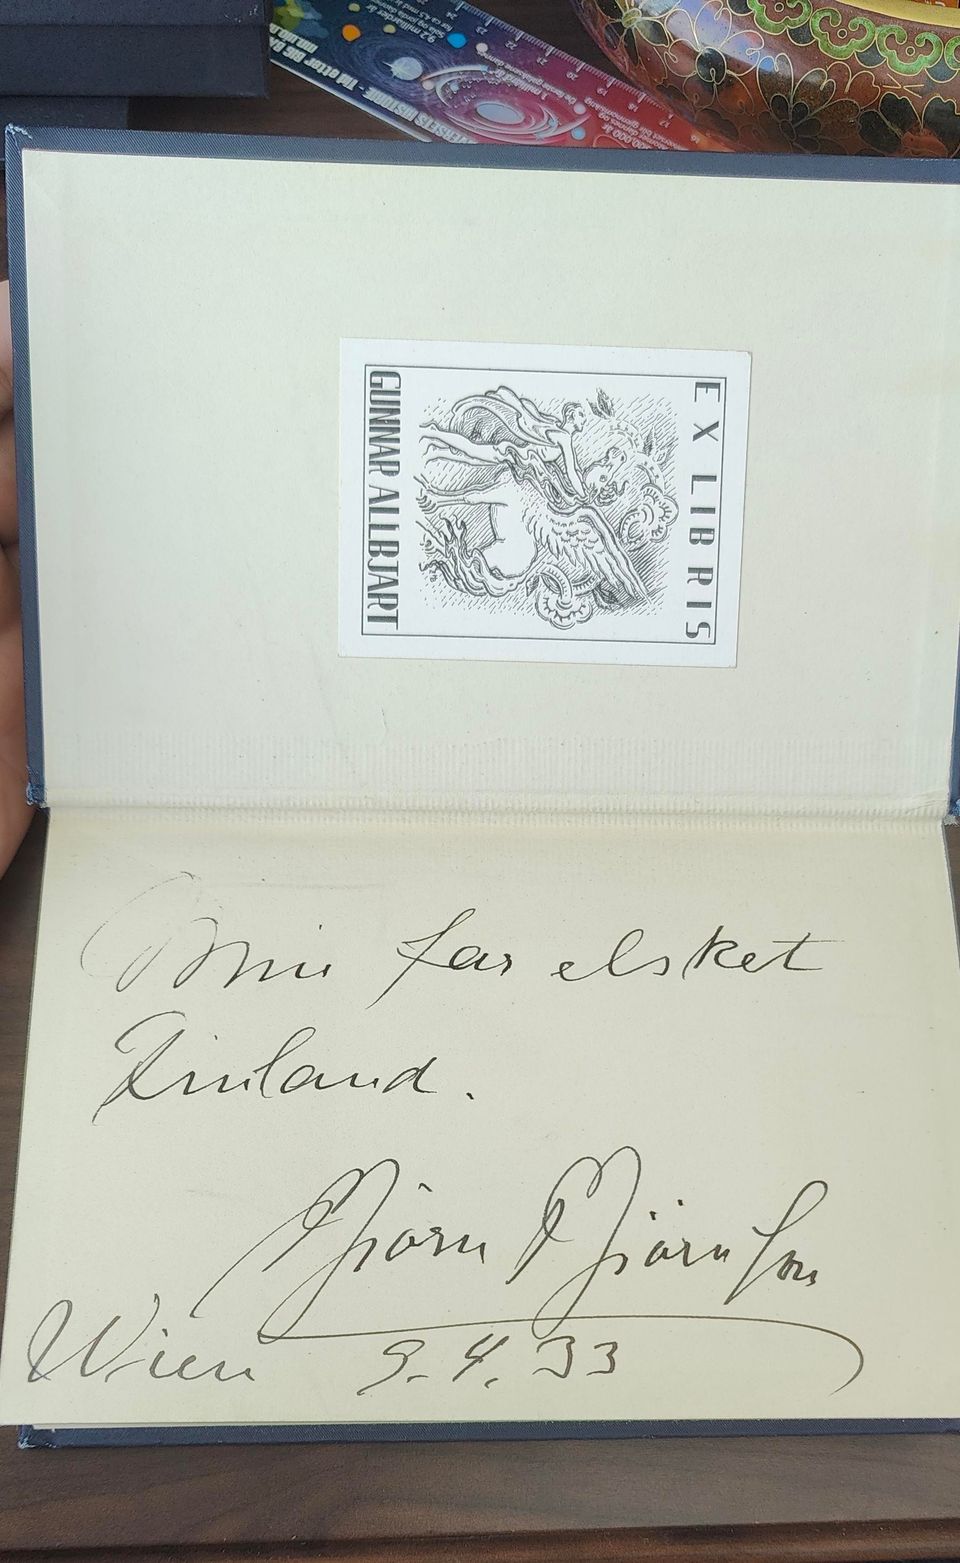 EX LIBRIS
GUNNAR ALLBJART
Min far elsket
Finland.
Björn Björnson
Wien 9.4.33